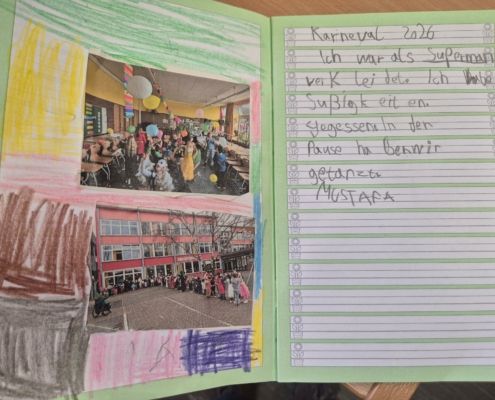 Karneval 2026
Ich war als Superman
verkleidet. Ich habe
Süßigkeiten
gegessen In der
Pause haben wir
getanzt.
MUSTAFA